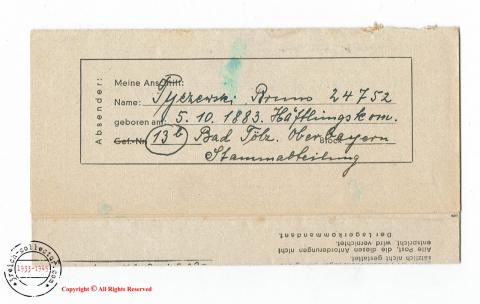 Absender:
Meine Anschrift:
Name: Pyczewski Bruno 24752
geboren am: 5. 10. 1883. Häftlingskom.
Gef.-Nr. 13b Bad Tölz. Ober Bayern
Block
Stammabteilung
sätzlich nicht gestattet.
Alle Post, die diesen Anforderungen nicht
entspricht, wird vernichtet.
Der Lagerkommandant.
reich-collector.com
1933-1945
Copyright © All Rights Reserved